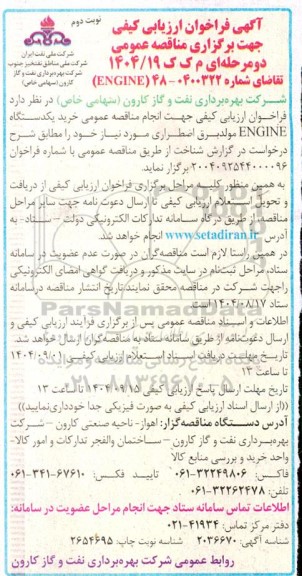 نوبت دوم
آگهی فراخوان ارزیابی کیفی
جهت برگزاری مناقصه عمومی
دومرحله‌ای م ک ک ۱۴۰۴/۱۹
تقاضای شماره ۰۴۰۰۳۲۲-۴۸ (ENGINE)
شرکت ملی نفت ایران
شرکت ملی مناطق نفتخیز جنوب
شرکت بهره‌برداری نفت و گاز
کارون (سهامی خاص)
شرکت بهره‌برداری نفت و گاز کارون (سهامی خاص) در نظر دارد
فراخوان ارزیابی کیفی جهت انجام مناقصه عمومی خرید یکدستگاه
ENGINE مولدبرق اضطراری مورد نیاز خود را مطابق شرح
درخواست در گزارش شناخت از طریق مناقصه عمومی با شماره فراخوان
۲۰۰۴۰۹۲۵۴۴۰۰۰۰۹۶ برگزار نماید.
به همین منظور کلیه مراحل برگزاری فراخوان ارزیابی کیفی از دریافت
و تحویل استعلام ارزیابی کیفی تا ارسال دعوت نامه جهت سایر مراحل
مناقصه، از طریق درگاه سامانه تدارکات الکترونیکی دولت – ستاد- به
آدرس www.setadiran.ir انجام خواهد شد.
در همین راستا لازم است مناقصه‌گران در صورت عدم عضویت در سامانه
ستاد، مراحل ثبت‌نام در سایت مذکور و دریافت گواهی امضای الکترونیکی
را جهت شرکت در مناقصه محقق نمایند تاریخ انتشار مناقصه در سامانه
ستاد ۱۴۰۴/۰۸/۱۷ است
اطلاعات و اسناد مناقصه عمومی پس از برگزاری فرآیند ارزیابی کیفی و
ارسال دعوت‌نامه از طریق سامانه ستاد به مناقصه‌گران ارسال خواهد شد.
تاریخ مهلت دریافت اسناد استعلام ارزیابی کیفی ۱۴۰۴/۰۹/۰۱
تا ساعت ۱۳
تاریخ مهلت ارسال پاسخ ارزیابی کیفی ۱۴۰۴/۰۹/۱۵ تا ساعت ۱۳
((از ارسال اسناد ارزیابی کیفی به صورت فیزیکی جدا خودداری نمایید))
آدرس دستگاه مناقصه‌گزار: اهواز- ناحیه صنعتی کارون – شرکت
بهره‌برداری نفت و گاز کارون – ساختمان والفجر تدارکات و امور کالا-
واحد خرید و بررسی منابع کالا
فاکس: ۳۲۲۴۹۸۰۶-۰۶۱ تایید فکس: ۶۷۶۱۰-۳۴۱-۰۶۱
تلفن: ۳۲۲۶۲۴۷۸-۰۶۱
اطلاعات تماس سامانه ستاد جهت انجام مراحل عضویت در سامانه:
دفتر مرکز تماس: ۴۱۹۳۴-۰۲۱
شناسه آگهی: ۲۰۳۶۶۷۰ شناسه نوبت چاپ: ۲۶۵۴۶۹۵
روابط عمومی شرکت بهره‌برداری نفت و گاز کارون